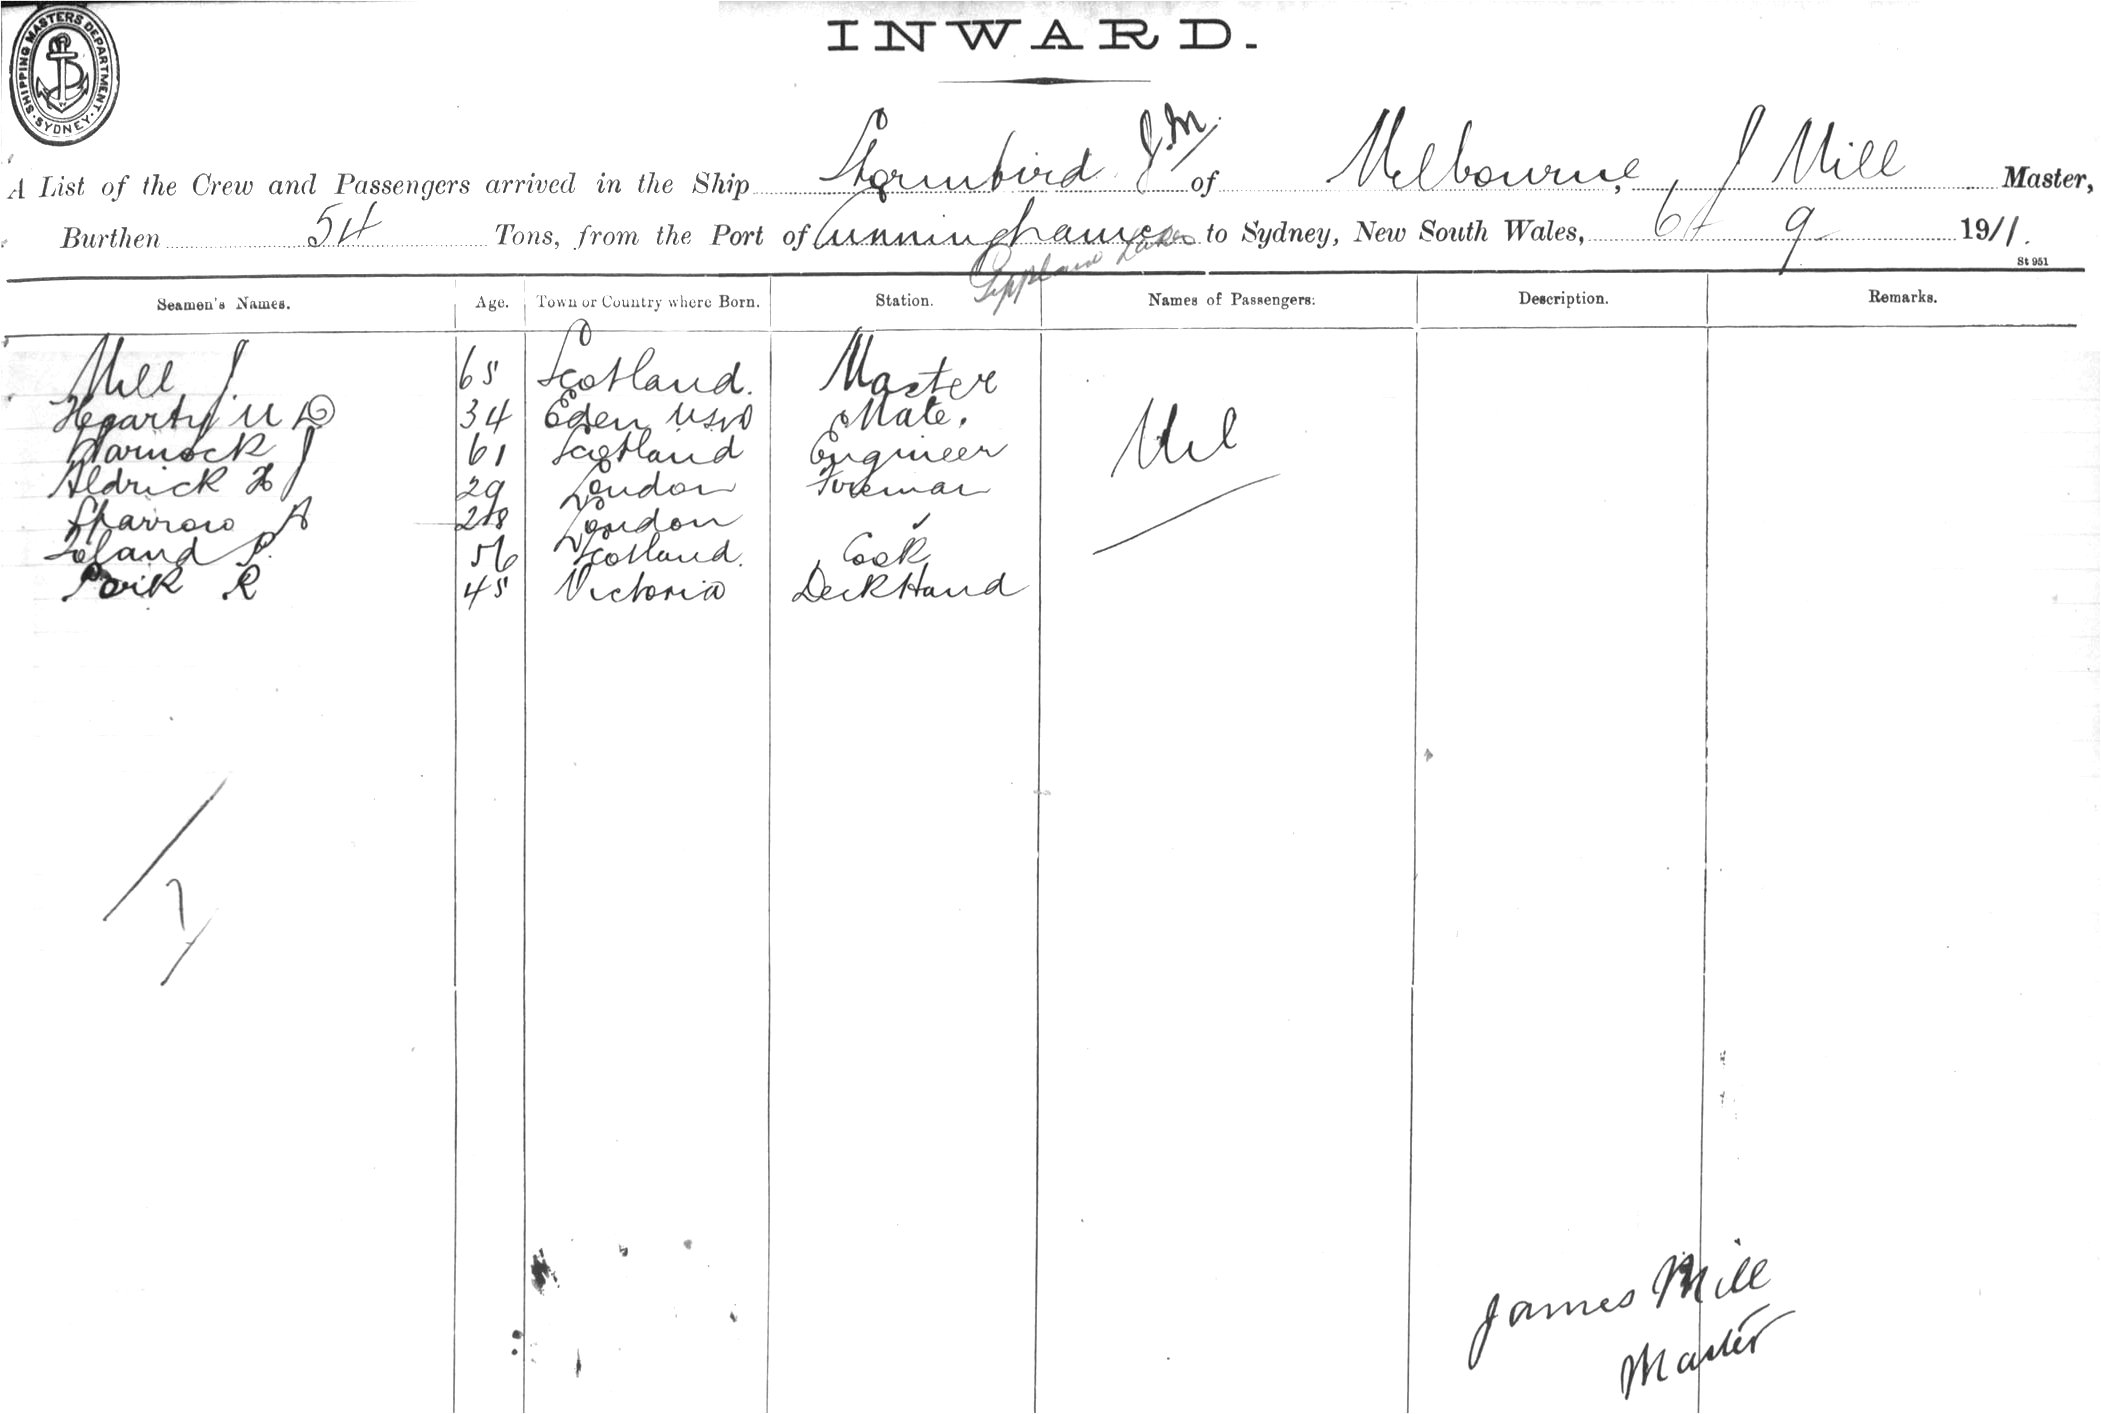 INWARD.
SHIPPING MASTERS DEPARTMENT
SYDNEY
A List of the Crew and Passengers arrived in the Ship Stormbird J.M. of Melbourne, J Mill Master,
Burthen 54 Tons, from the Port of Cunninghame to Sydney, New South Wales, 6 9 1911.
Gippland Lakes
St 951
Seamen's Names. Age. Town or Country where Born. Station. Names of Passengers: Description. Remarks.
Mill J 65 Scotland. Master
Hegarty M D 34 Eden NSW Mate. Nil
Warnock J 61 Scotland Engineer
Aldrick H J 29 London Fireman
Sparrow A 28 London
Toland P. 56 Scotland. Cook
R 45 Victoria Deck Hand
7
James Mill
Master